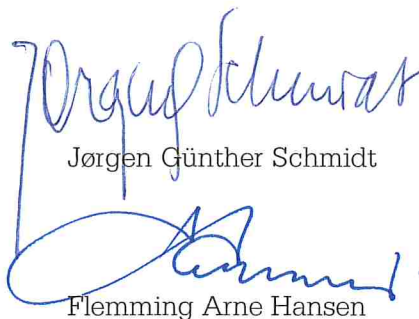 Jørgen Schmidt
Jørgen Günther Schmidt
Flemming Arne Hansen